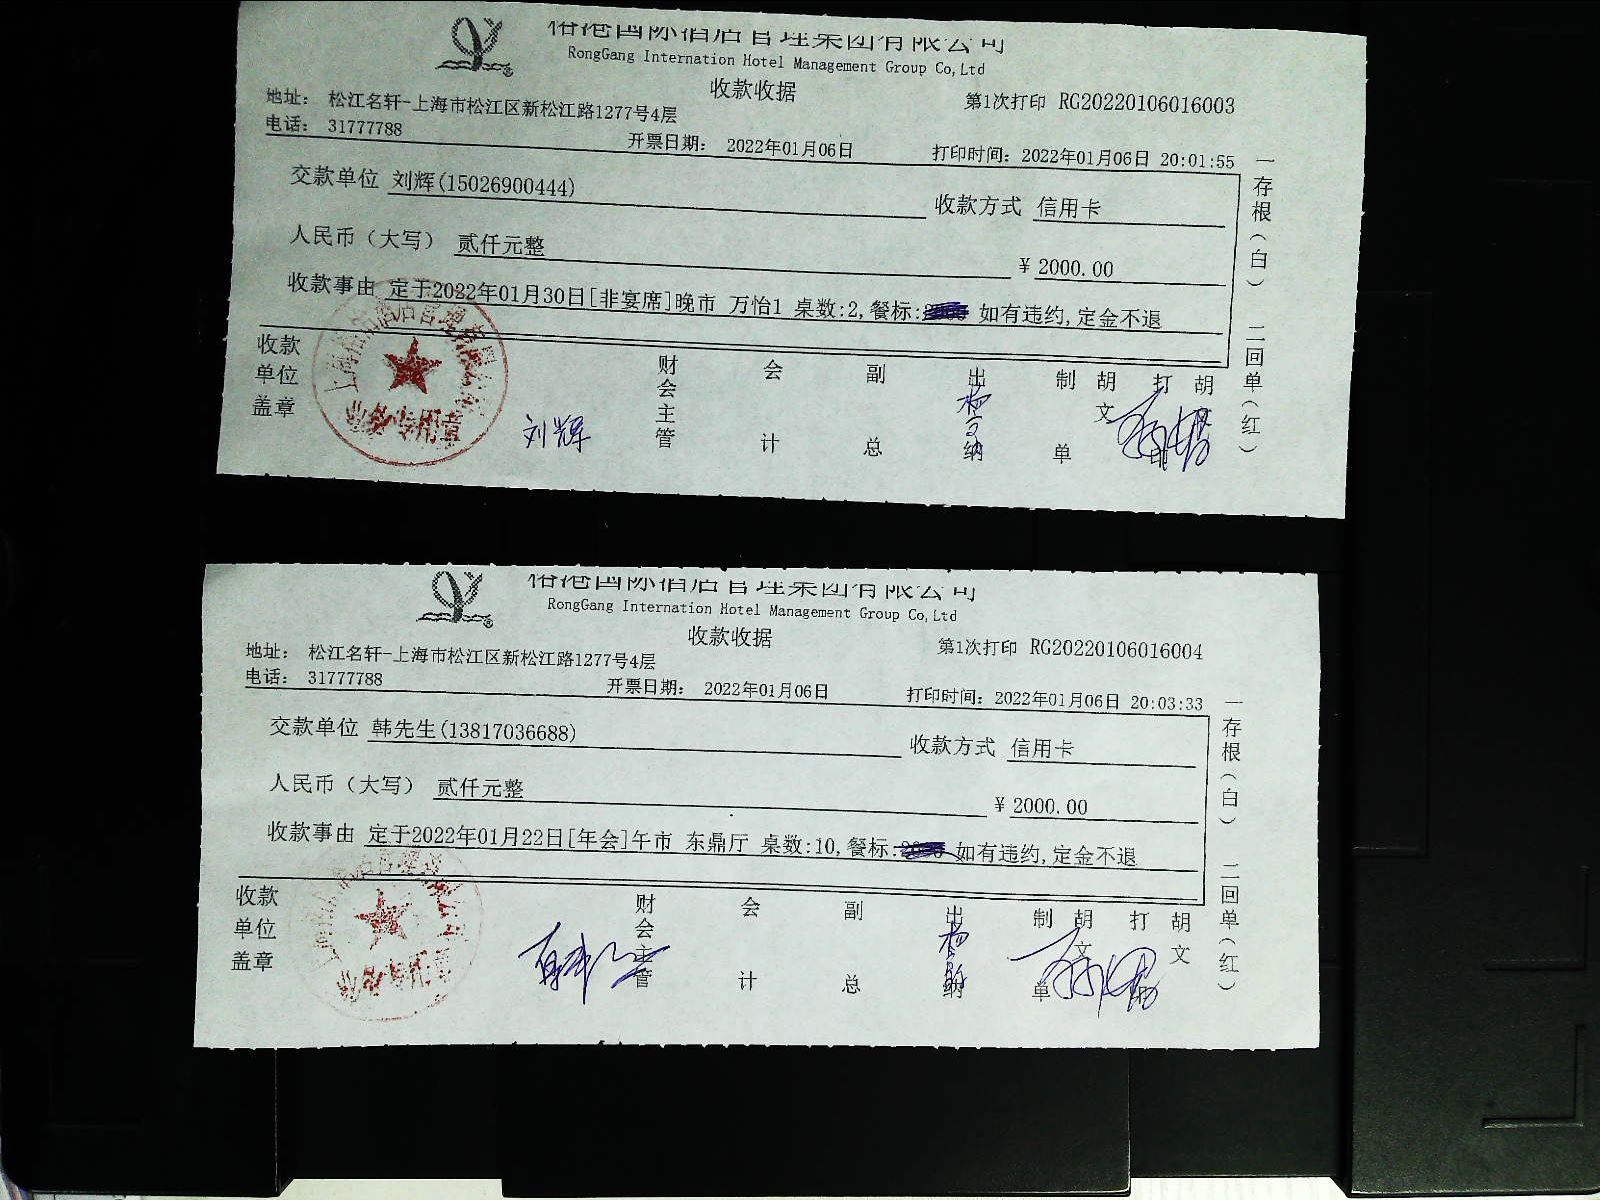 国际酒店管理集团有限公司
RongGang Internation Hotel Management Group Co,Ltd
收款收据
地址： 松江名轩-上海市松江区新松江路1277号4层
第1次打印 RG20220106016003
电话： 31777788
开票日期： 2022年01月06日
打印时间：2022年01月06日 20:01:55
交款单位 刘辉(15026900444)
收款方式 信用卡
人民币（大写） 贰仟元整
¥ 2000.00
收款事由 定于2022年01月30日[非宴席]晚市 万怡1 桌数:2,餐标: 如有违约,定金不退
一存根（白） 二回单（红）
收款单位盖章
业务专用章
刘辉
财会主管
会计
副总
出纳
制单
胡文
打印
胡
国际酒店管理集团有限公司
RongGang Internation Hotel Management Group Co,Ltd
收款收据
地址： 松江名轩-上海市松江区新松江路1277号4层
第1次打印 RG20220106016004
电话： 31777788
开票日期： 2022年01月06日
打印时间：2022年01月06日 20:03:33
交款单位 韩先生(13817036688)
收款方式 信用卡
人民币（大写） 贰仟元整
¥ 2000.00
收款事由 定于2022年01月22日[年会]午市 东鼎厅 桌数:10,餐标: 如有违约,定金不退
一存根（白） 二回单（红）
收款单位盖章
业务专用章
财会主管
会计
副总
出纳
制单
胡文
打印
胡文